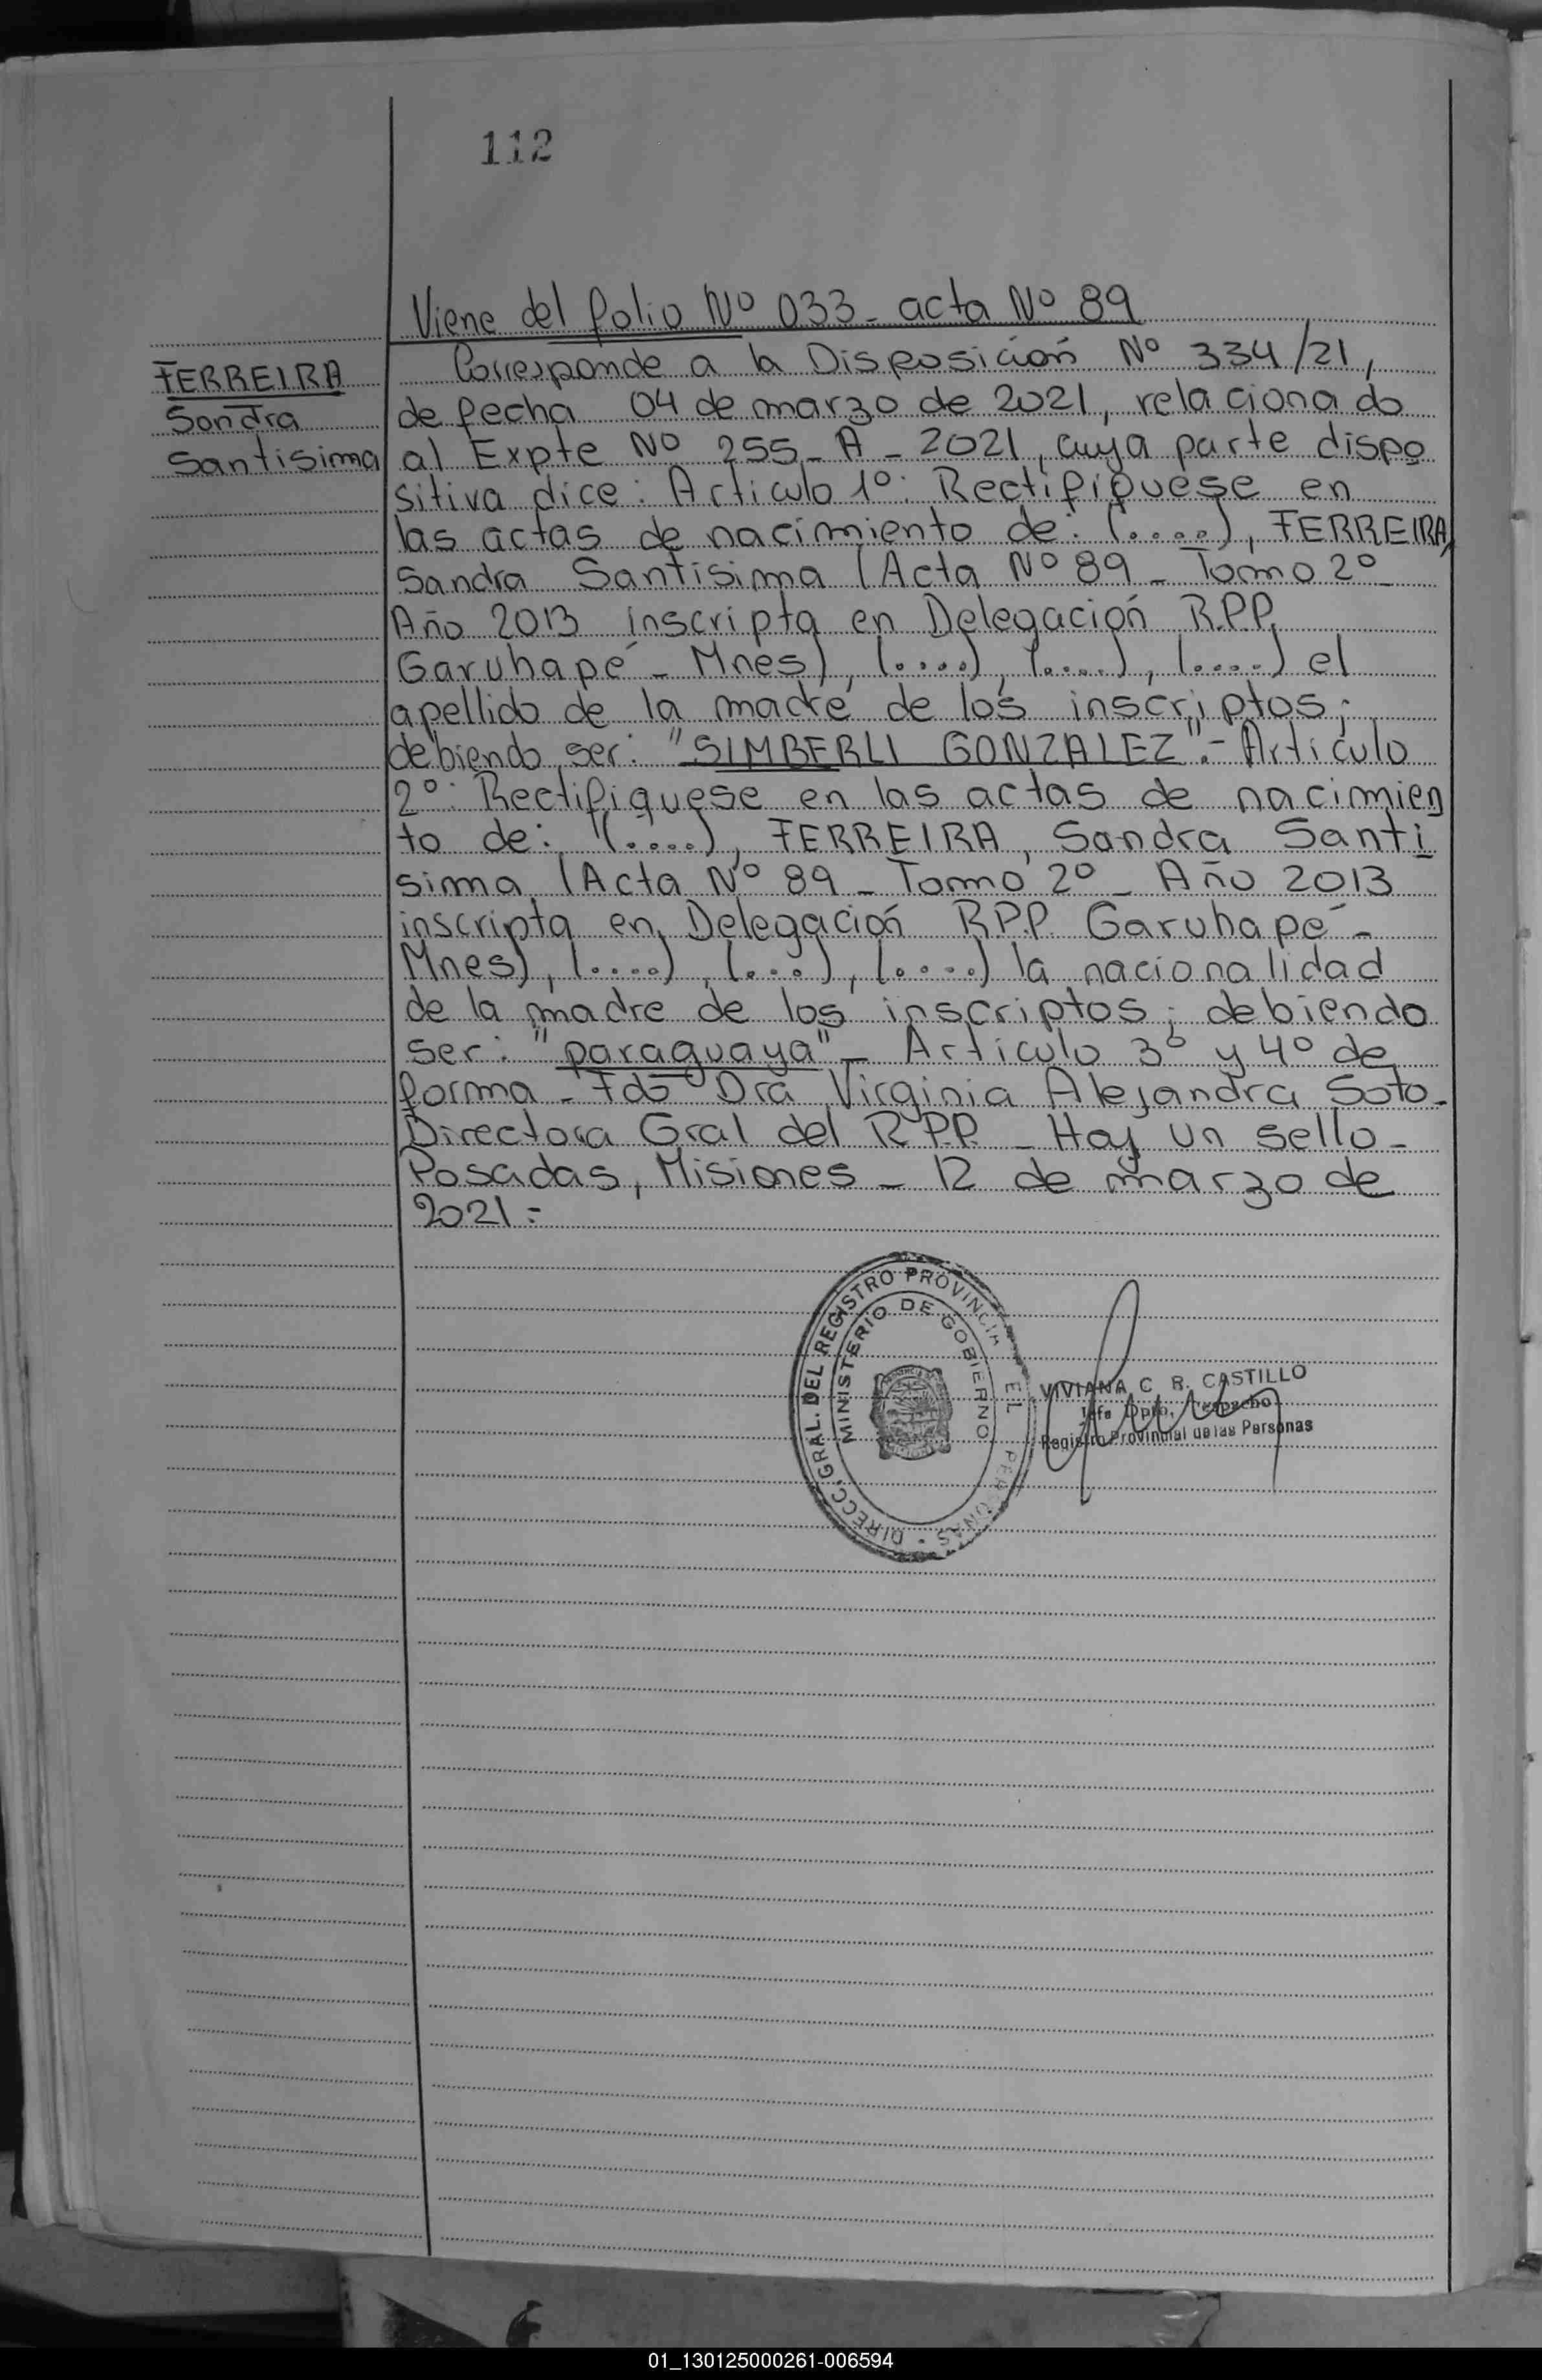 112
Viene del folio Nº 033 - acta Nº 89
FERREIRA
Sandra
Santisima
Corresponde a la Disposición Nº 334/21,
de fecha 04 de marzo de 2021, relacionado
al Expte Nº 255 - A - 2021, cuya parte dispo
sitiva dice: Articulo 1º: Rectifiquese en
las actas de nacimiento de: (....), FERREIRA,
Sandra Santisima (Acta Nº 89 - Tomo 2º -
Año 2013 inscripta en Delegación R.P.P.
Garuhapé - Mnes), (....), (....), (....) el
apellido de la madre de los inscriptos;
debiendo ser: "SIMBERLI GONZALEZ".- Artículo
2º: Rectifiquese en las actas de nacimien
to de: (....), FERREIRA, Sandra Santi
sima (Acta Nº 89 - Tomo 2º - Año 2013
inscripta en Delegación R.P.P. Garuhapé -
Mnes), (....), (....), (....) la nacionalidad
de la madre de los inscriptos; debiendo
ser: "paraguaya" - Articulo 3º y 4º de
forma - Fdo Dra Virginia Alejandra Soto -
Directora Gral del R.P.P. - Hay un sello -
Posadas, Misiones - 12 de marzo de
2021 =
DIRECC. GRAL. DEL REGISTRO PROVINCIAL DE PERSONAS
MINISTERIO DE GOBIERNO
VIVIANA C. R. CASTILLO
Jefa Dpto. Despacho
Registro Provincial de las Personas
01_130125000261-006594